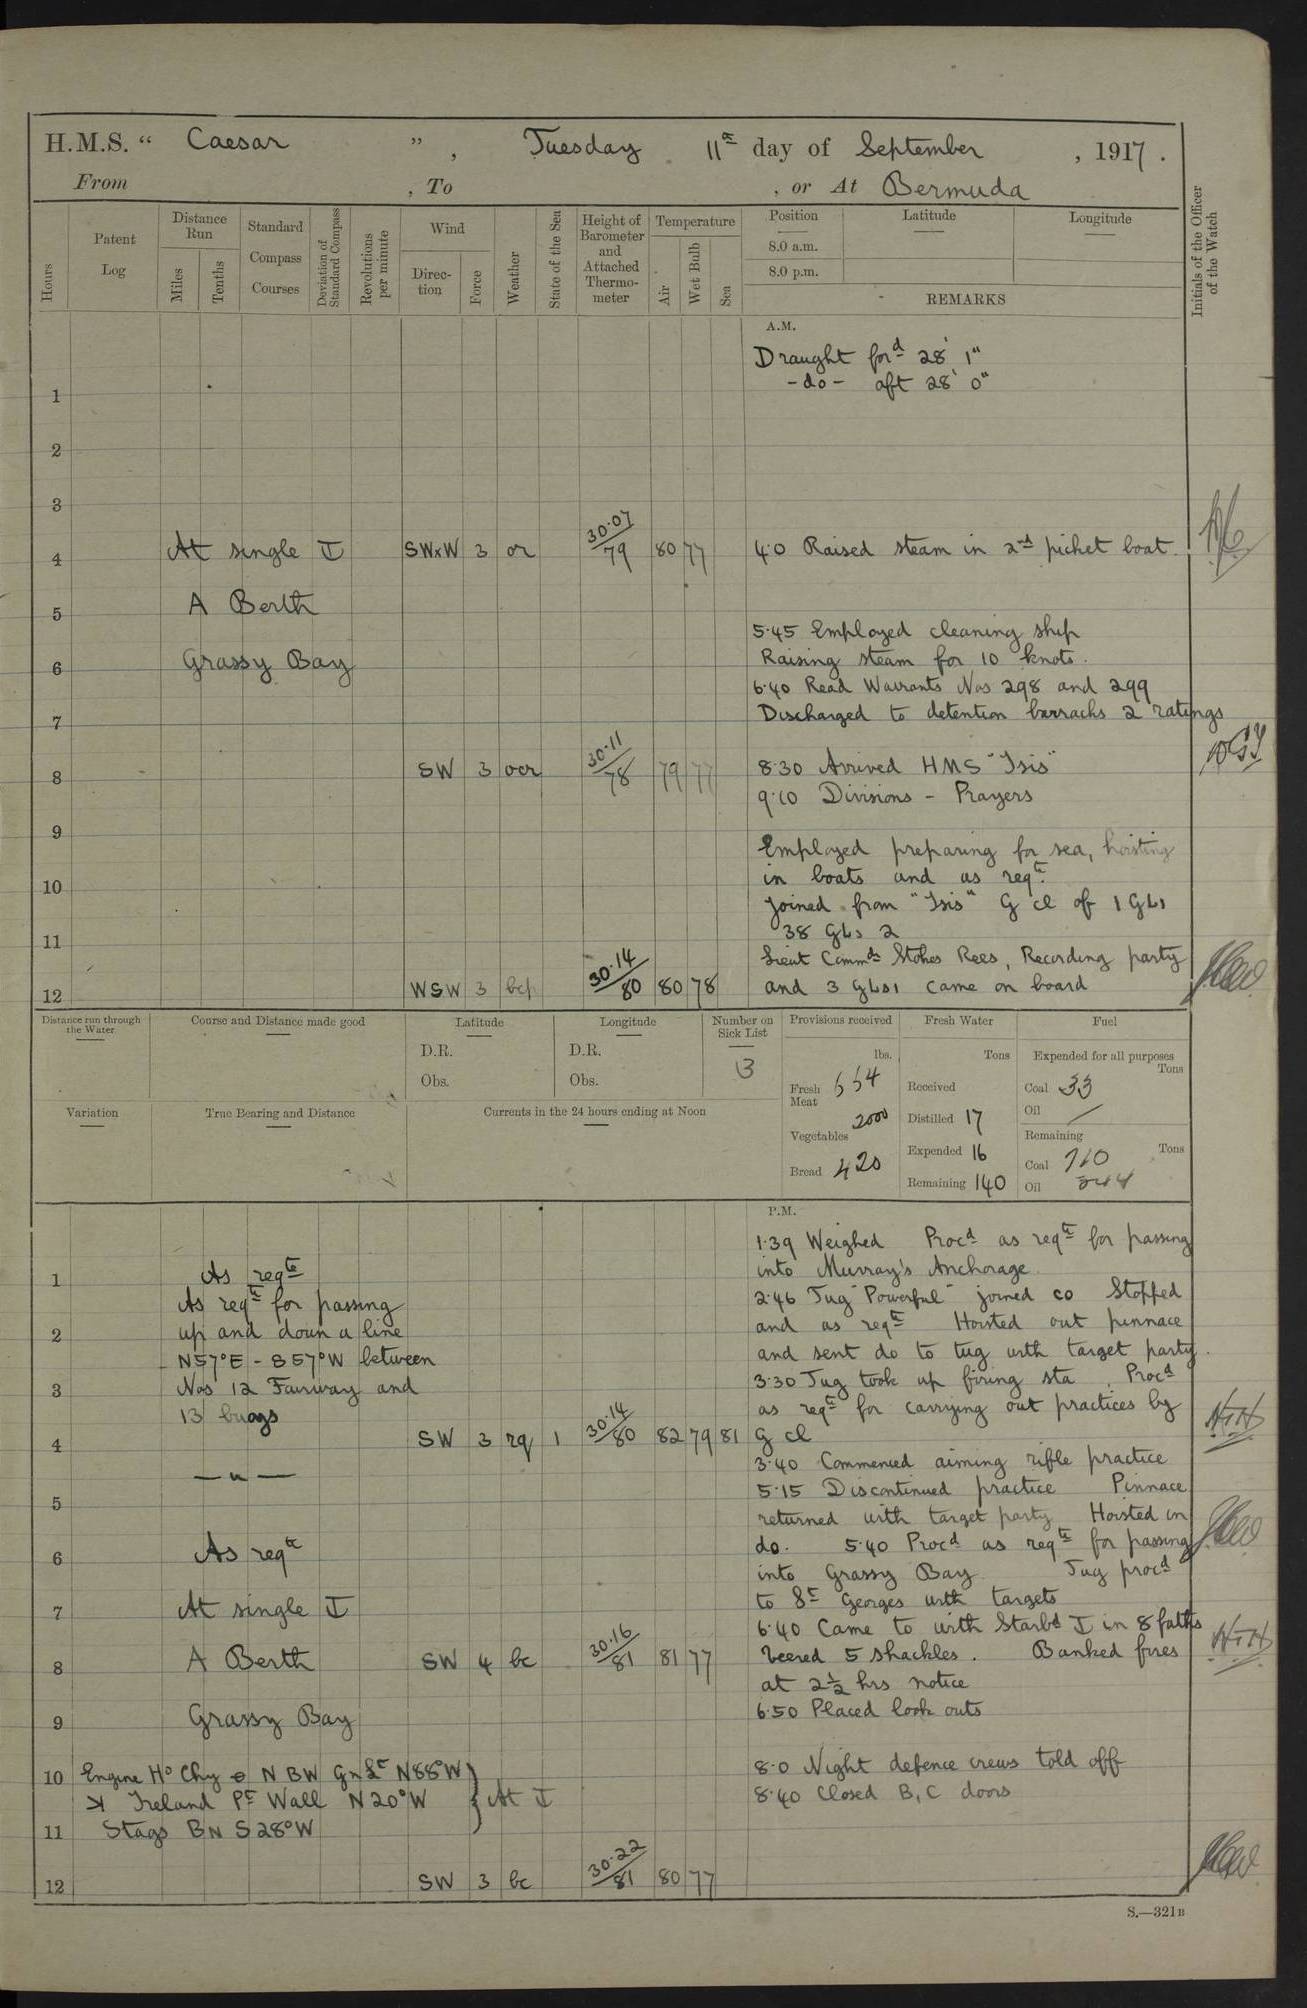 H.M.S. “ Caesar ” , Tuesday 11th day of September , 1917 .
From , To , or At Bermuda
Hours
Patent Log
Distance Run
Miles
Tenths
Standard Compass Courses
Deviation of Standard Compass
Revolutions per minute
Wind
Direction
Force
Weather
State of the Sea
Height of Barometer and Attached Thermometer
Temperature
Air
Wet Bulb
Sea
Position Latitude Longitude
8.0 a.m.
8.0 p.m.
REMARKS
Initials of the Officer of the Watch
A.M.
Draught ford 28' 1"
-do- aft 28' 0"
1
2
3
4 At single SWxW 3 or 30.07/79 80 77 4.0 Raised steam in 2nd picket boat.
A Berth
5
5.45 Employed cleaning ship
6 Grassy Bay Raising steam for 10 knots.
6.40 Read Warrants Nos 298 and 299
7 Discharged to detention barracks 2 ratings
8 SW 3 ocr 30.11/78 79 77 8.30 Arrived HMS "Isis"
9.10 Divisions - Prayers
9
Employed preparing for sea, hoisting
10 in boats and as reqte.
Joined from "Isis" G cl of 1 GL1
11 38 GLs 2
Lieut Commdr Stokes Rees, Recording party
12 WSW 3 bcp 30.14/80 80 78 and 3 GLs1 came on board
Distance run through the Water
Course and Distance made good
Latitude
D.R.
Obs.
Longitude
D.R.
Obs.
Number on Sick List
13
Provisions received
lbs.
Fresh Meat 554
Vegetables 2000
Bread 420
Fresh Water
Tons
Received
Distilled 17
Expended 16
Remaining 140
Fuel
Expended for all purposes
Tons
Coal 33
Oil /
Remaining
Tons
Coal 710
Oil 244
Variation
True Bearing and Distance
Currents in the 24 hours ending at Noon
P.M.
1.39 Weighed Procd as reqte for passing
1 As reqte into Murray's Anchorage
As reqte for passing 2.46 Tug "Powerful" joined co Stopped
2 up and down a line and as reqte Hoisted out pinnace
N57°E - S57°W between and sent do to tug with target party.
3 Nos 12 Fairway and 3.30 Tug took up firing sta. Procd
13 buoys as reqte for carrying out practices by
4 SW 3 rq 1 30.14/80 82 79 81 G cl
— " — 3.40 Commenced aiming rifle practice
5 5.15 Discontinued practice Pinnace
returned with target party Hoisted in
6 As reqte do. 5.40 Procd as reqte for passing
into Grassy Bay. Tug procd
7 At single to St Georges with targets
6.40 Came to with Starbd in 8 faths
8 A Berth SW 4 bc 30.16/81 81 77 Veered 5 shackles. Banked fires
at 2½ hrs notice
9 Grassy Bay 6.50 Placed look outs
10 Engine Ho Chy N BW N88°W 8.0 Night defence crews told off
Ireland Pt Wall N20°W At 8.40 Closed B, C doors
11 Stags BN S28°W
12 SW 3 bc 30.22/81 80 77
S.—321B